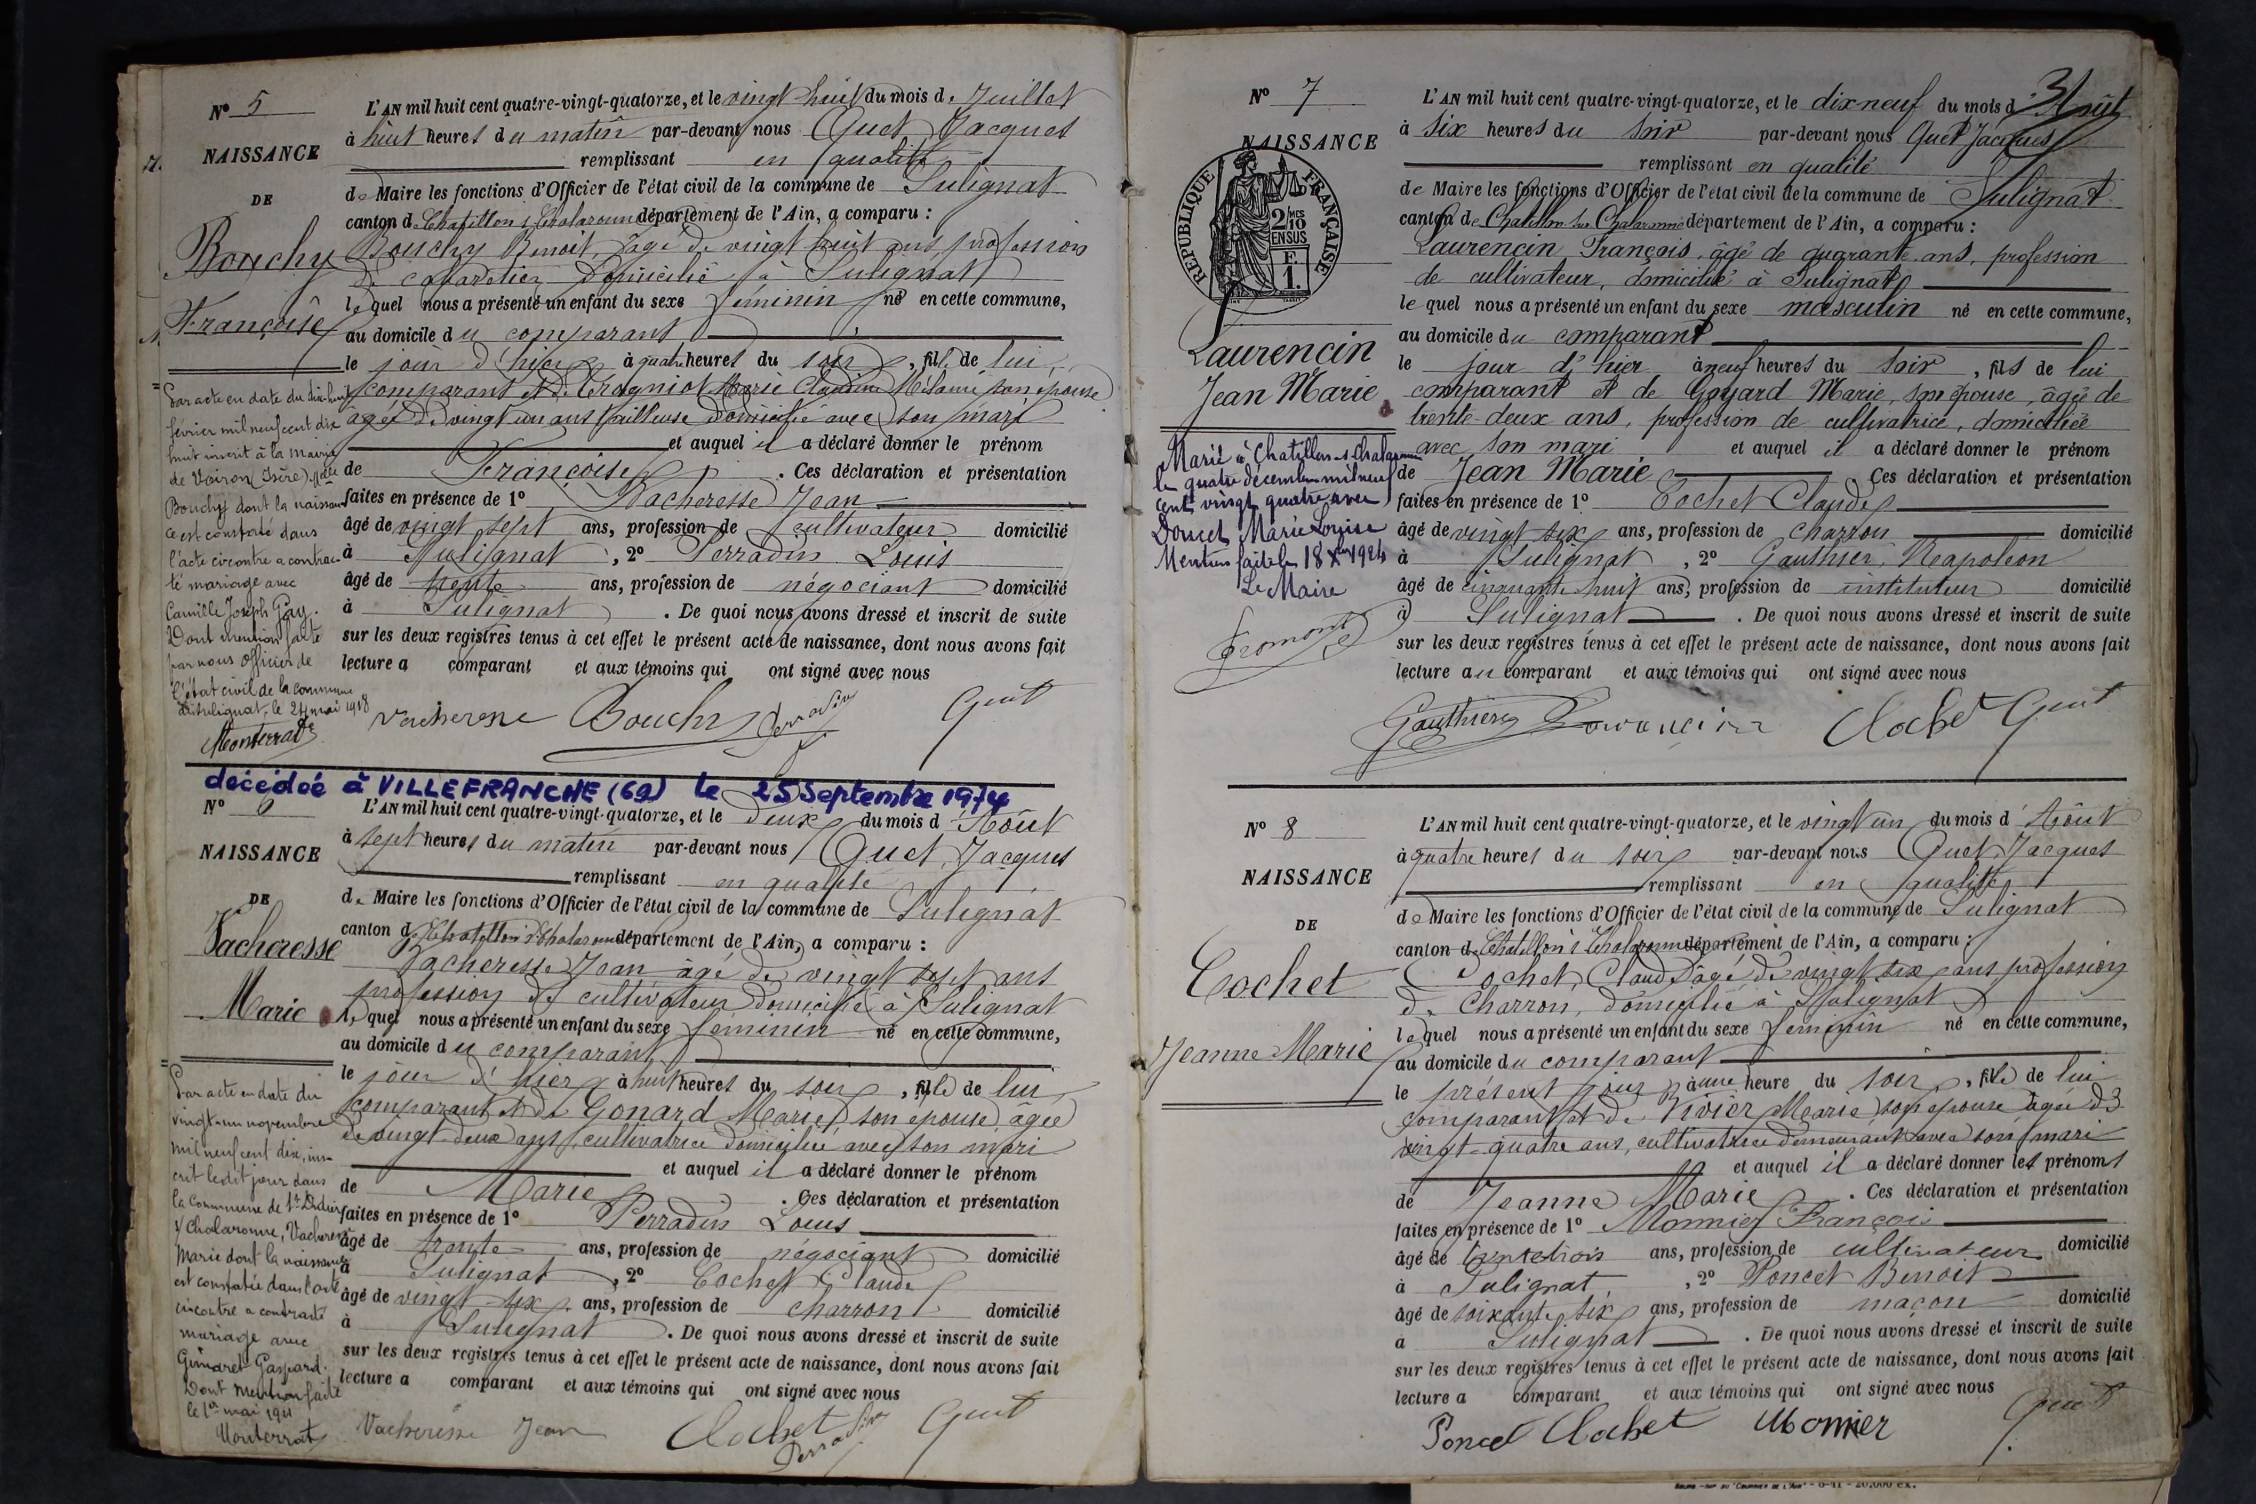 Nº 5
NAISSANCE
DE
Bouchy
Françoise
Par acte en date du dix-huit
février mil neuf cent dix
huit inscrit à la mairie
de Voiron (Isère) Melle
Bouchy dont la naissan
ce est constaté dans
l'acte circontre a contrac
té mariage avec
Camille Joseph Gay.
Dont mention faite
par nous officier de
l'état civil de la commune
de Sulignat, le 24 mai 1918
Monterrat
L'AN mil huit cent quatre-vingt-quatorze, et le vingt huit du mois de Juillet
à huit heures du matin par-devant nous Quet Jacques
remplissant en qualité
de Maire les fonctions d'Officier de l'état civil de la commune de Sulignat
canton de Chatillon s Chalaronne département de l'Ain, a comparu :
Bouchy Benoit, âgé de vingt huit ans, profession
de cabaretier domicilié à Sulignat
lequel nous a présenté un enfant du sexe féminin né en cette commune,
au domicile du comparant
le jour d'hier à quatre heures du soir, fille de lui
comparant et de Gragniot Marie Claudine Mélanie son épouse
âgée de vingt un ans tailleuse domiciliée avec son mari
et auquel il a déclaré donner le prénom
de Françoise . Ces déclaration et présentation
faites en présence de 1º Vacheresse Jean
âgé de vingt sept ans, profession de cultivateur domicilié
à Sulignat , 2º Perradin Louis
âgé de trente ans, profession de négociant domicilié
à Sulignat . De quoi nous avons dressé et inscrit de suite
sur les deux registres tenus à cet effet le présent acte de naissance, dont nous avons fait
lecture a comparant et aux témoins qui ont signé avec nous
Vacheresse Bouchy Perradin Quet
décédée à VILLEFRANCHE (69) le 25 Septembre 1974
Nº 6
NAISSANCE
DE
Vacheresse
Marie
Par acte en date du
vingt-un novembre
mil neuf cent dix, ins-
crit ledit jour dans
la commune de St Didier
s/ Chalaronne, Vacheresse
Marie dont la naissance
est constatée dans l'acte
circontre a contracté
mariage avec
Guinaret Gaspard.
Dont mention faite
le 1er mai 1911
Monterrat
L'AN mil huit cent quatre-vingt-quatorze, et le deux du mois d'Août
à sept heures du matin par-devant nous Quet Jacques
remplissant en qualité
de Maire les fonctions d'Officier de l'état civil de la commune de Sulignat
canton de Chatillon s Chalaronne département de l'Ain, a comparu :
Vacheresse Jean âgé de vingt sept ans
profession de cultivateur domicilié à Sulignat
lequel nous a présenté un enfant du sexe féminin né en cette commune,
au domicile du comparant
le jour d'hier à huit heures du soir , fille de lui
comparant et de Gonard Marie son épouse, agée
de vingt-deux ans, cultivatrice domiciliée avec son mari
et auquel il a déclaré donner le prénom
de Marie . Ces déclaration et présentation
faites en présence de 1º Perradin Louis
âgé de trente ans, profession de négociant domicilié
à Sulignat , 2º Cochet Claude
âgé de vingt six ans, profession de charron domicilié
à Sulignat . De quoi nous avons dressé et inscrit de suite
sur les deux registres tenus à cet effet le présent acte de naissance, dont nous avons fait
lecture a comparant et aux témoins qui ont signé avec nous
Vacheresse Jean Cochet Perradin Quet
Nº 7
NAISSANCE
RÉPUBLIQUE FRANÇAISE
2/10 MES
EN SUS
F.
1.
Laurencin
Jean Marie
Marié à Chatillon-s-Chalaronne
le quatre décembre mil neuf
cent vingt quatre avec
Doucet Marie Louise
Mention faite le 18 Xbre 1924
Le Maire
Fromont
31
L'AN mil huit cent quatre-vingt-quatorze, et le dix-neuf du mois d'Août
à six heures du soir par-devant nous Quet Jacques
remplissant en qualité
de Maire les fonctions d'Officier de l'état civil de la commune de Sulignat
canton de Chatillon sur Chalaronne département de l'Ain, a comparu :
Laurencin François, âgé de quarante ans, profession
de cultivateur, domicilié à Sulignat
lequel nous a présenté un enfant du sexe masculin né en cette commune,
au domicile du comparant
le jour d'hier à neuf heures du soir , fils de lui
comparant et de Goyard Marie, son épouse, âgée de
trente-deux ans, profession de cultivatrice, domiciliée
avec son mari et auquel il a déclaré donner le prénom
de Jean Marie Ces déclaration et présentation
faites en présence de 1º Cochet Claude
âgé de vingt six ans, profession de charron domicilié
à Sulignat , 2º Gauthier, Napoléon
âgé de cinquante huit ans, profession de instituteur domicilié
à Sulignat . De quoi nous avons dressé et inscrit de suite
sur les deux registres tenus à cet effet le présent acte de naissance, dont nous avons fait
lecture au comparant et aux témoins qui ont signé avec nous
Gauthier Laurencin Cochet Quet
Nº 8
NAISSANCE
DE
Cochet
Jeanne Marie
L'AN mil huit cent quatre-vingt-quatorze, et le vingt un du mois d'Août
à quatre heures du soir par-devant nous Quet Jacques
remplissant en qualité
de Maire les fonctions d'Officier de l'état civil de la commune de Sulignat
canton de Chatillon s Chalaronne département de l'Ain, a comparu :
Cochet Claude âgé de vingt six ans profession
de Charron, domicilié à Sulignat
lequel nous a présenté un enfant du sexe féminin né en cette commune,
au domicile du comparant
le présent jour à une heure du soir , fille de lui
comparant et de Vivier Marie son épouse âgée de
vingt-quatre ans, cultivatrice demeurant avec son mari
et auquel il a déclaré donner les prénoms
de Jeanne Marie . Ces déclaration et présentation
faites en présence de 1º Monnier François
âgé de trente trois ans, profession de cultivateur domicilié
à Sulignat , 2º Poncet Benoit
âgé de soixante six ans, profession de maçon domicilié
à Sulignat . De quoi nous avons dressé et inscrit de suite
sur les deux registres tenus à cet effet le présent acte de naissance, dont nous avons fait
lecture a comparant et aux témoins qui ont signé avec nous
Poncet Cochet Monnier Quet